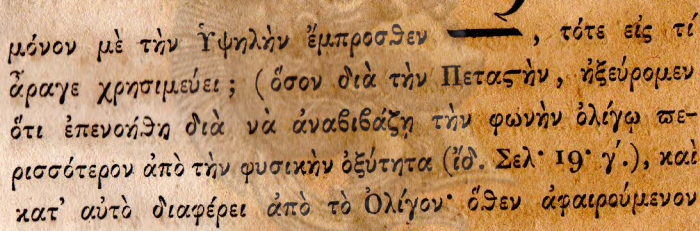 μόνον μὲ τὴν Ὑψηλὴν ἔμπροσθεν , τότε εἰς τί
ἆραγε χρησιμεύει ; ( ὅσον διὰ τὴν Πεταστὴν , ἠξεύρομεν
ὅτι ἐπενοήθη διὰ νὰ ἀναβιβάζῃ τὴν φωνὴν ὀλίγῳ πε-
ρισσότερον ἀπὸ τὴν φυσικὴν ὀξύτητα (ἴδ. Σελ· 19· γ΄.), καὶ
κατ' αὐτὸ διαφέρει ἀπὸ τὸ Ὀλίγον· ὅθεν ἀφαιρούμενον